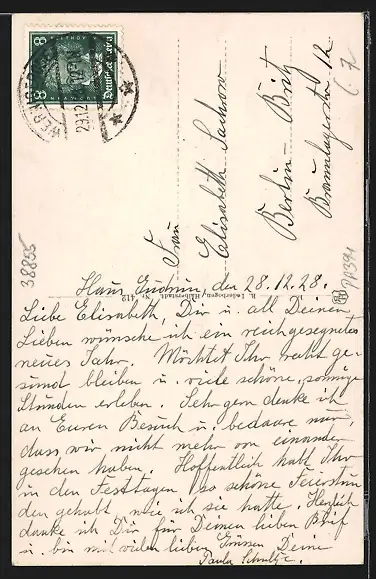 8 8
Deutsches Reich
BEETHOVEN
29.12
Frau
Elisabeth Sachrow
Berlin - Britz
Braunlagerstr. 12
38855
Haus Gudrun, den 28.12.28.
Liebe Elisabeth, Dir u. all Deinen
Lieben wünsche ich ein reichgesegnetes
neues Jahr. Möchtet Ihr recht ge-
sund bleiben u. viele schöne, sonnige
Stunden erleben. Sehr gern denke ich
an Euren Besuch u. bedaure nur,
dass wir nicht mehr von einander
gesehen haben. Hoffentlich habt Ihr
in den Festtagen so schöne Feierstun
den gehabt wie ich sie hatte. Herzlich
danke ich Dir für Deinen lieben Brief
u. bin mit vielen lieben Grüssen Deine
Paula Schultze.